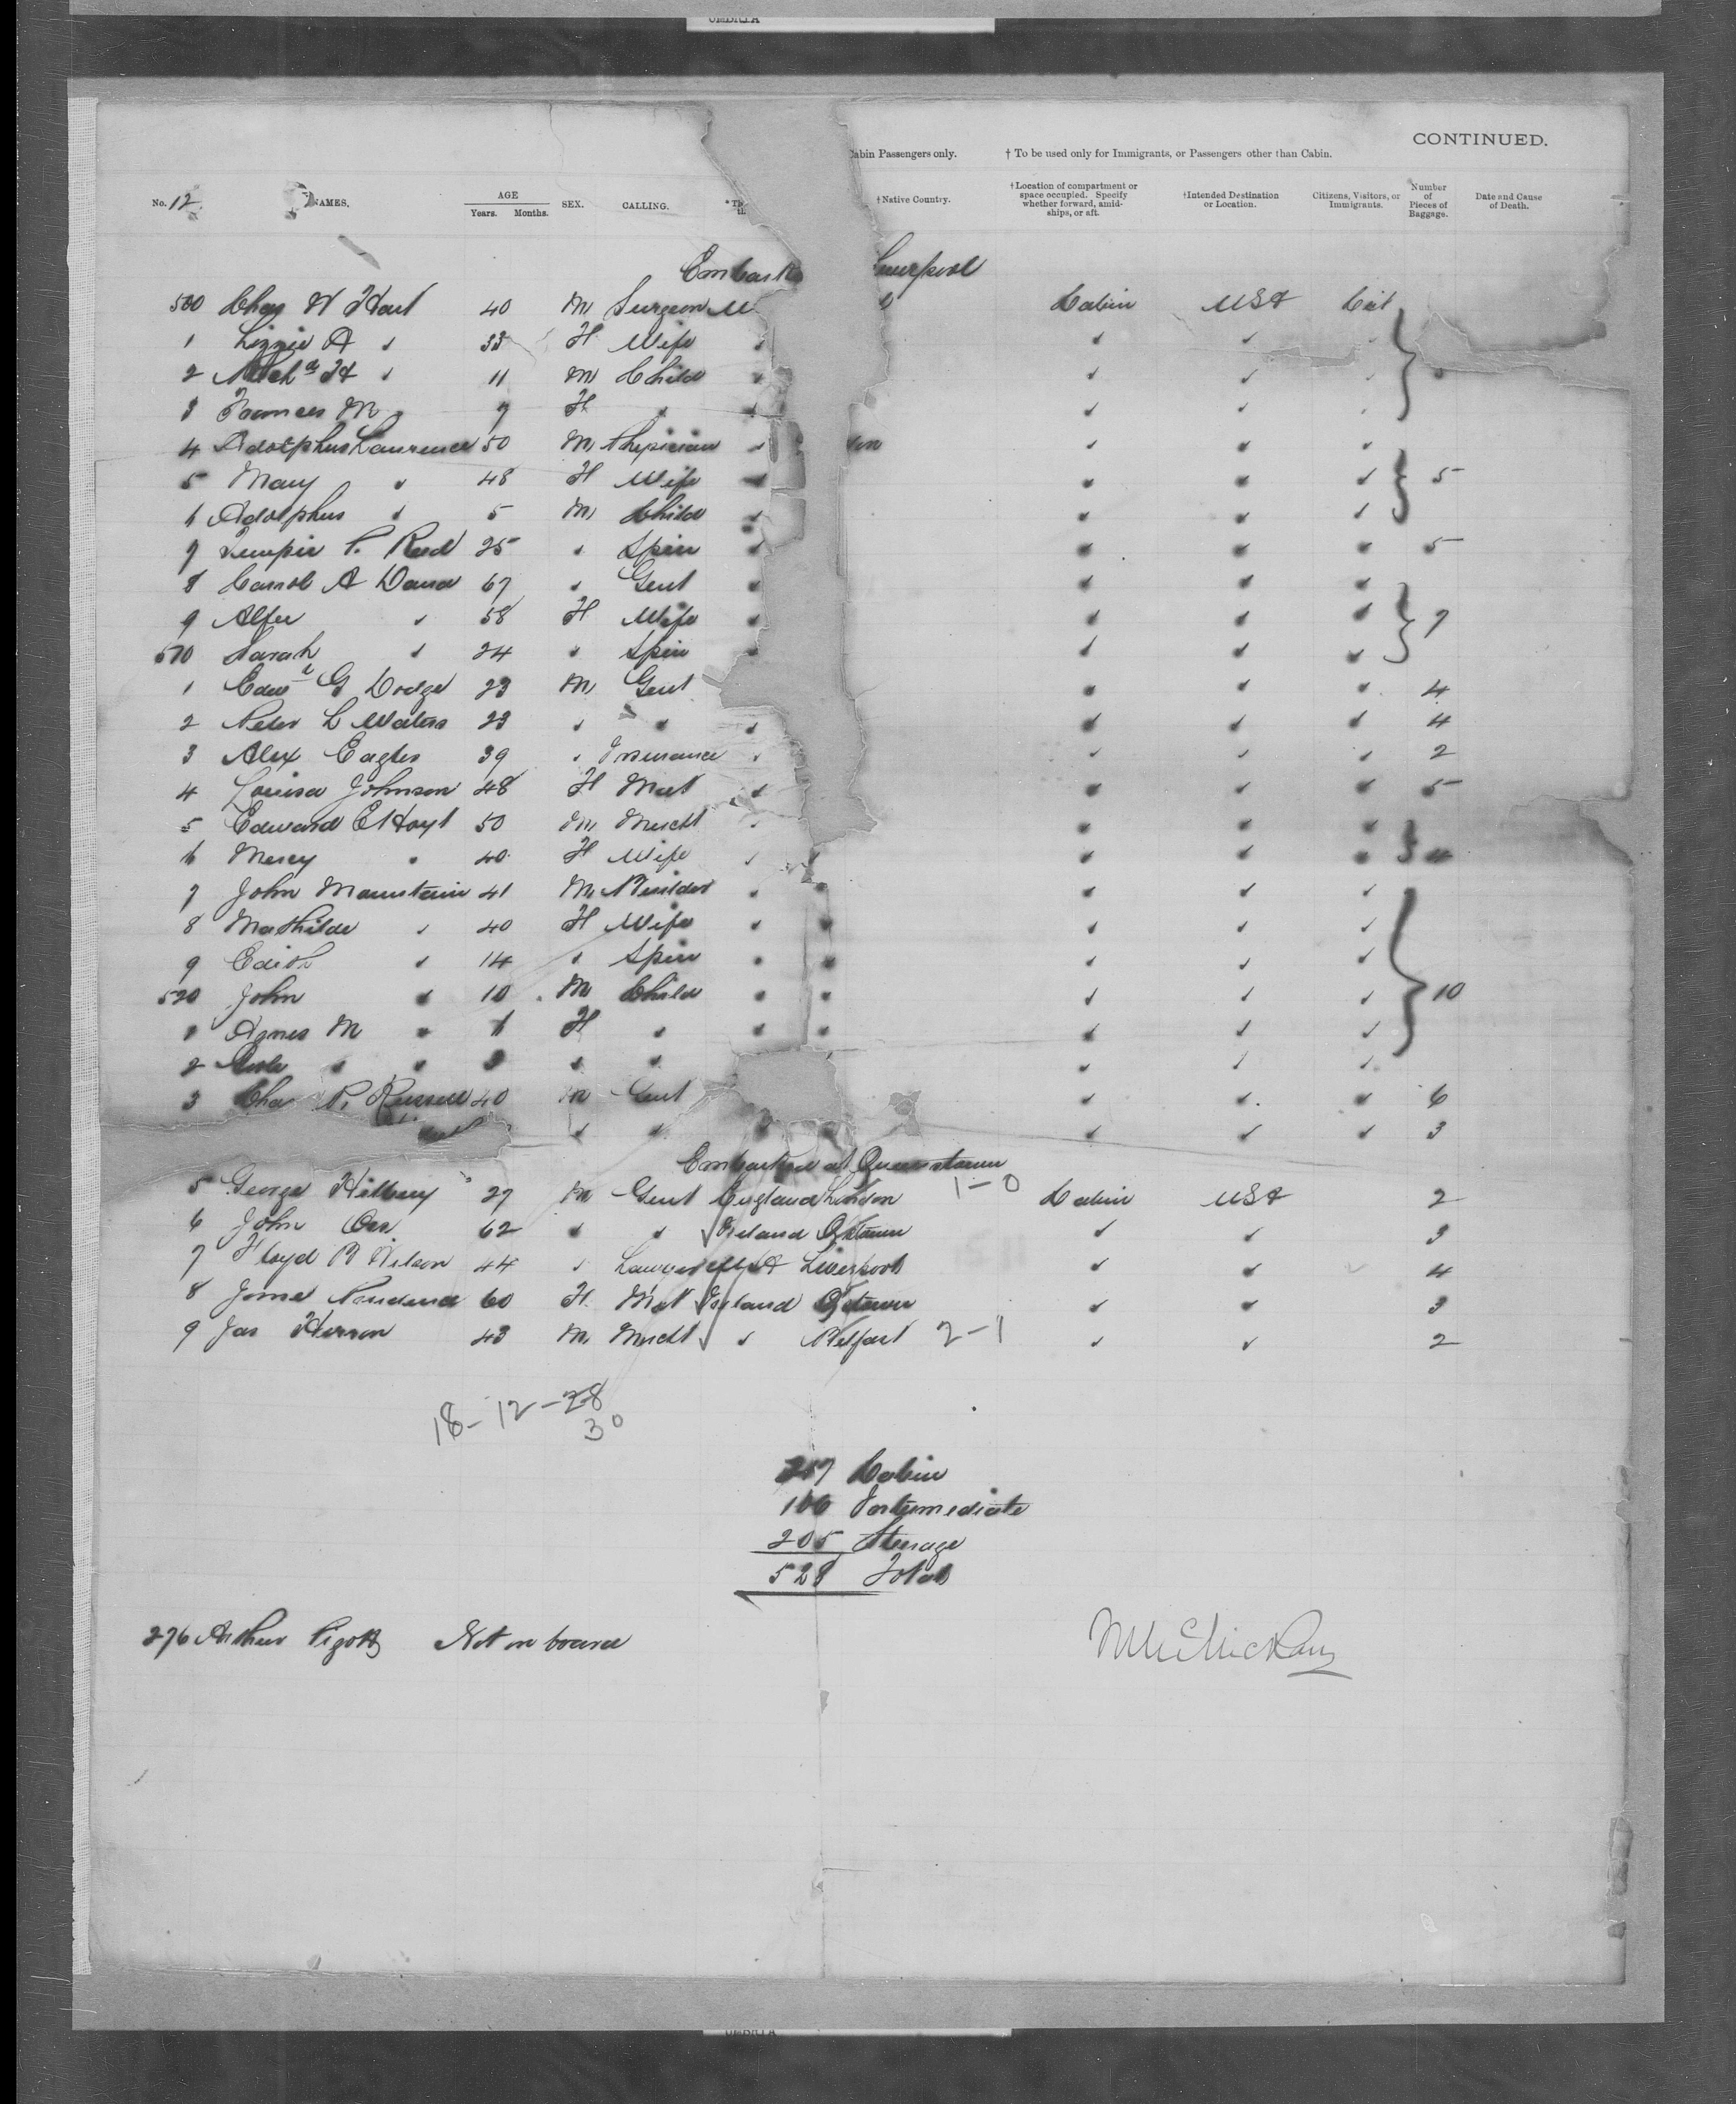 UMBRIA
CONTINUED.
Cabin Passengers only. † To be used only for Immigrants, or Passengers other than Cabin.
No. 12 NAMES. AGE Years. Months. SEX. CALLING. †Native Country. †Location of compartment or space occupied. Specify whether forward, amidships, or aft. †Intended Destination or Location. Citizens, Visitors, or Immigrants. Number of Pieces of Baggage. Date and Cause of Death.
Liverpool
500 Chas W Hart 40 M Surgeon Cabin USA Cit
1 Lizzie A " 33 F Wife " " "
2 " 11 M Child " " "
3 Frances M " 7 F " " " "
4 Adolphus Laurence 50 M Physician " " " "
5 Mary " 48 F Wife " " " " 5
6 Adolphus " 5 M Child " " " "
7 P. Reed 25 " Spin " " " " 5
8 Carrol A Dana 67 " Gent " " " "
9 " 58 F Wife " " " " 7
510 Sarah " 24 " Spin " " " "
1 Edwd G Dodge 23 M Gent " " " 4
2 Peter L Waters 23 " " " " " " 4
3 Alex Eagles 39 " Insurance " " " " 2
4 Louisa Johnson 48 F Mat " " " " 5
5 Edward E Hoyt 50 M Mercht " " " "
6 Mercy " 40 F Wife " " " "
7 John 41 M Builder " " " " "
8 Mathilde " 40 F Wife " " " " "
9 Edith " 14 " Spin " " " " "
520 John " 10 M Child " " " " " 10
1 Agnes M " F " " " " " "
2 " " " " " " "
3 Chas P. Russell 40 M Gent " " " 6
" " " " " " " 3
Embarked at Queenstown
5 George 27 M Gent England London 1-0 Cabin USA 2
6 John Orr 62 " " Ireland Qtown " " 3
7 Floyd B Wilson 44 " Lawyer USA Liverpool " " 4
8 60 F Mat Ireland Qtown " " 3
9 Jas Herron 43 M Mercht " Belfast 2-1 " " 2
18-12-28
30
Cabin
Intermediate
205 Steerage
528 Total
276 Arthur Pigott Not on board
UMBRIA